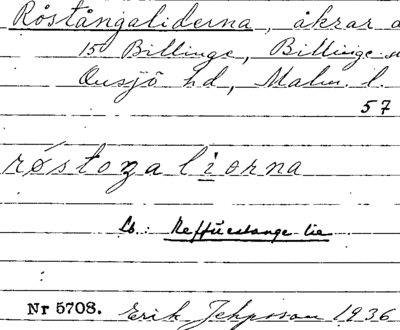 Röstångaliderna, åkrar
15 Billinge, Billinge
Onsjö hd, Malm. l.
57
röstoŋa liorna
Lb.:
Nr 5708. Erik Jeppsson 1936